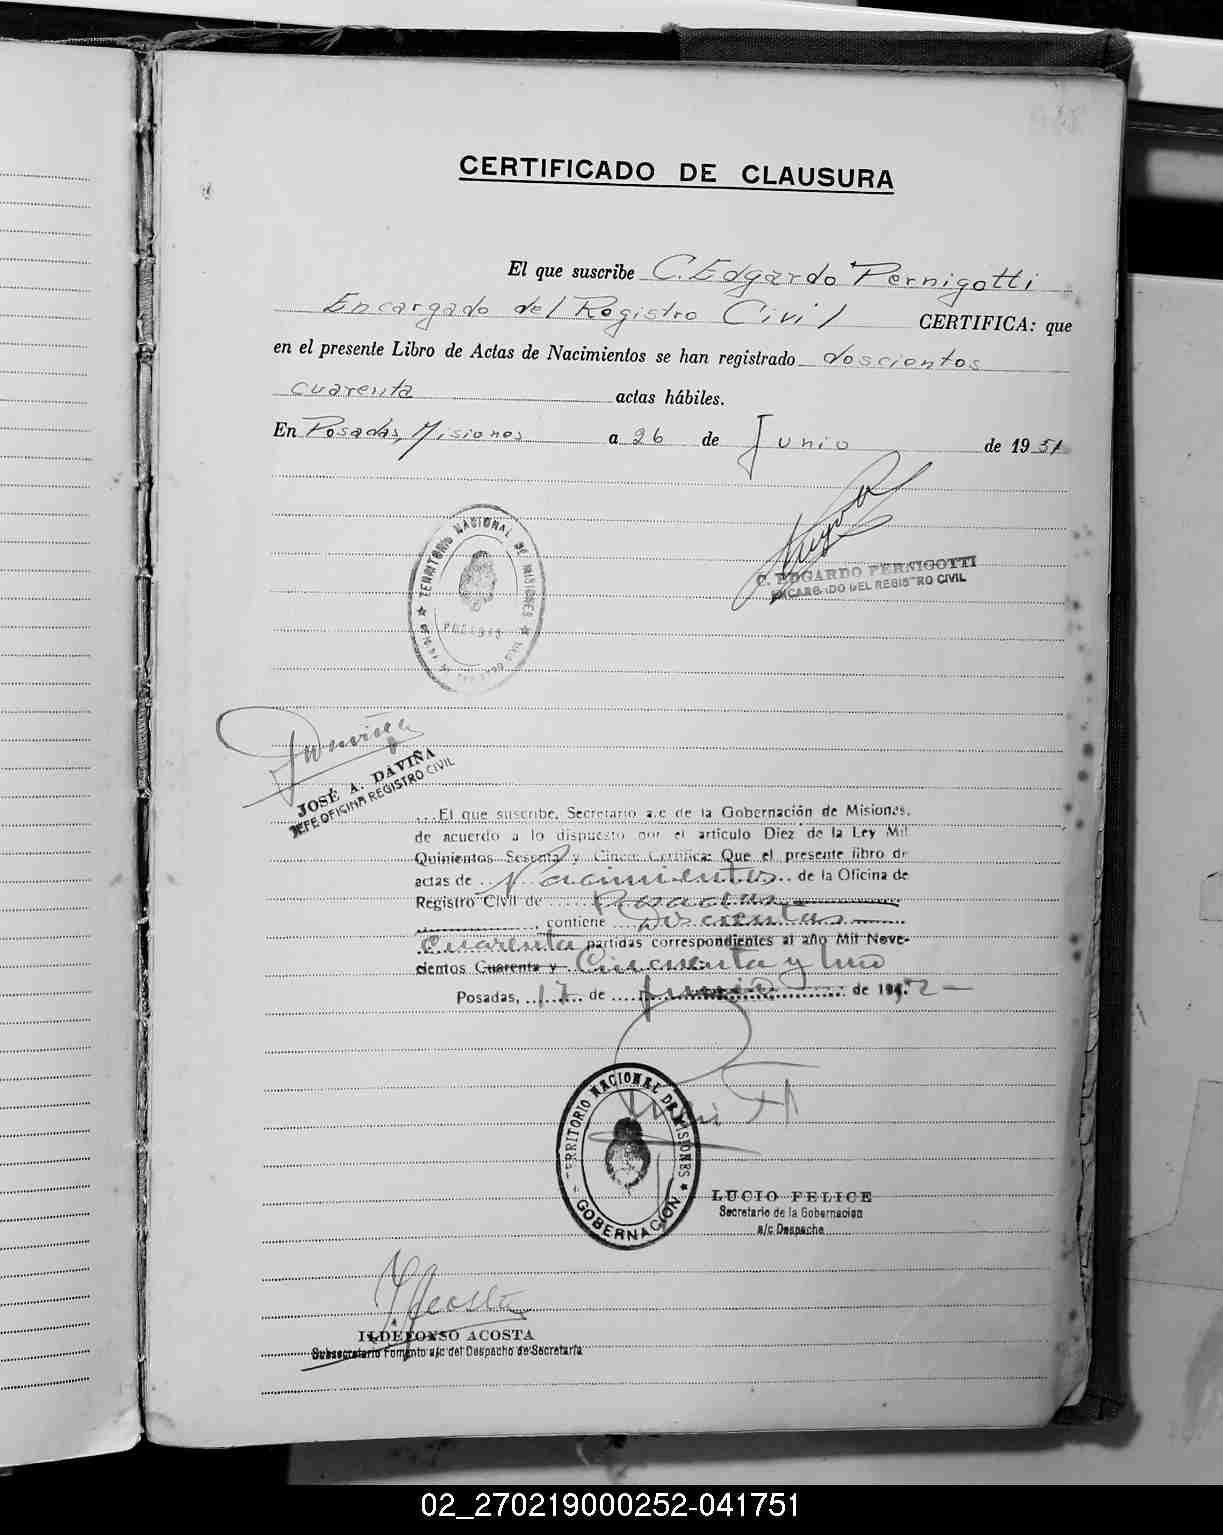 CERTIFICADO DE CLAUSURA
El que suscribe C. Edgardo Pernigotti
Encargado del Registro Civil CERTIFICA: que
en el presente Libro de Actas de Nacimientos se han registrado doscientos
cuarenta actas hábiles.
En Posadas, Misiones a 26 de Junio de 1951
TERRITORIO NACIONAL DE MISIONES
POSADAS
C. EDGARDO PERNIGOTTI
ENCARGADO DEL REGISTRO CIVIL
JOSÉ A. DAVIÑA
JEFE OFICINA REGISTRO CIVIL
El que suscribe, Secretario a/c de la Gobernación de Misiones,
de acuerdo a lo dispuesto por el artículo Diez de la Ley Mil
Quinientos Sesenta y Cinco Certifica: Que el presente libro de
actas de Nacimientos de la Oficina de
Registro Civil de Posadas
, contiene Doscientas
Cuarenta partidas correspondientes al año Mil Nove-
cientos Cuarenta y Cincuenta y Uno
Posadas, 17 de Junio de 1952-
TERRITORIO NACIONAL DE MISIONES
GOBERNACION
LUCIO FELICE
Secretario de la Gobernacion
a/c Despacho
Acosta
ILDEFONSO ACOSTA
Subsecretario Fomento a/c del Despacho de Secretaría
02_270219000252-041751